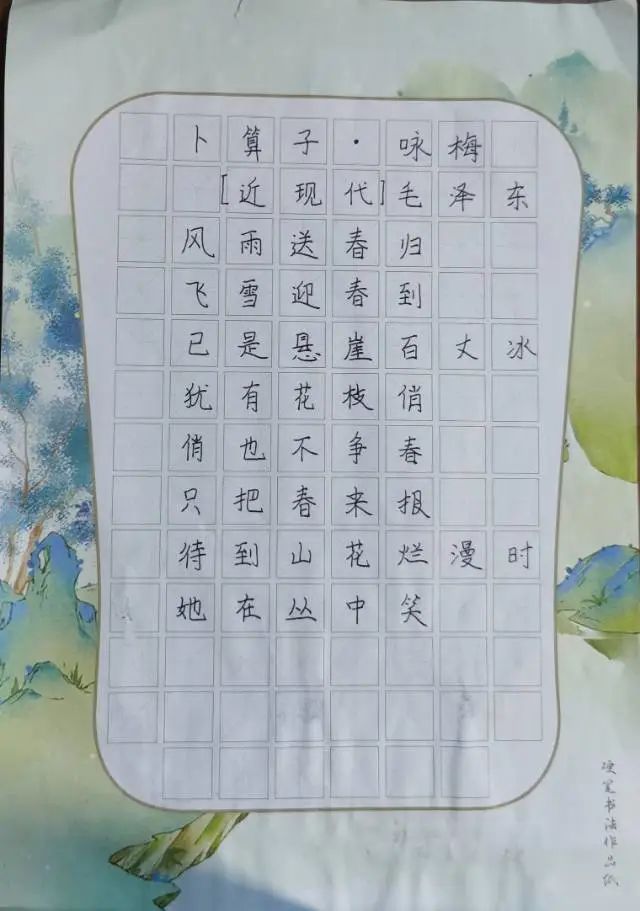 卜算子·咏梅
[近现代]毛泽东
风雨送春归
飞雪迎春到
已是悬崖百丈冰
犹有花枝俏
俏也不争春
只把春来报
待到山花烂漫时
她在丛中笑
硬笔书法作品纸